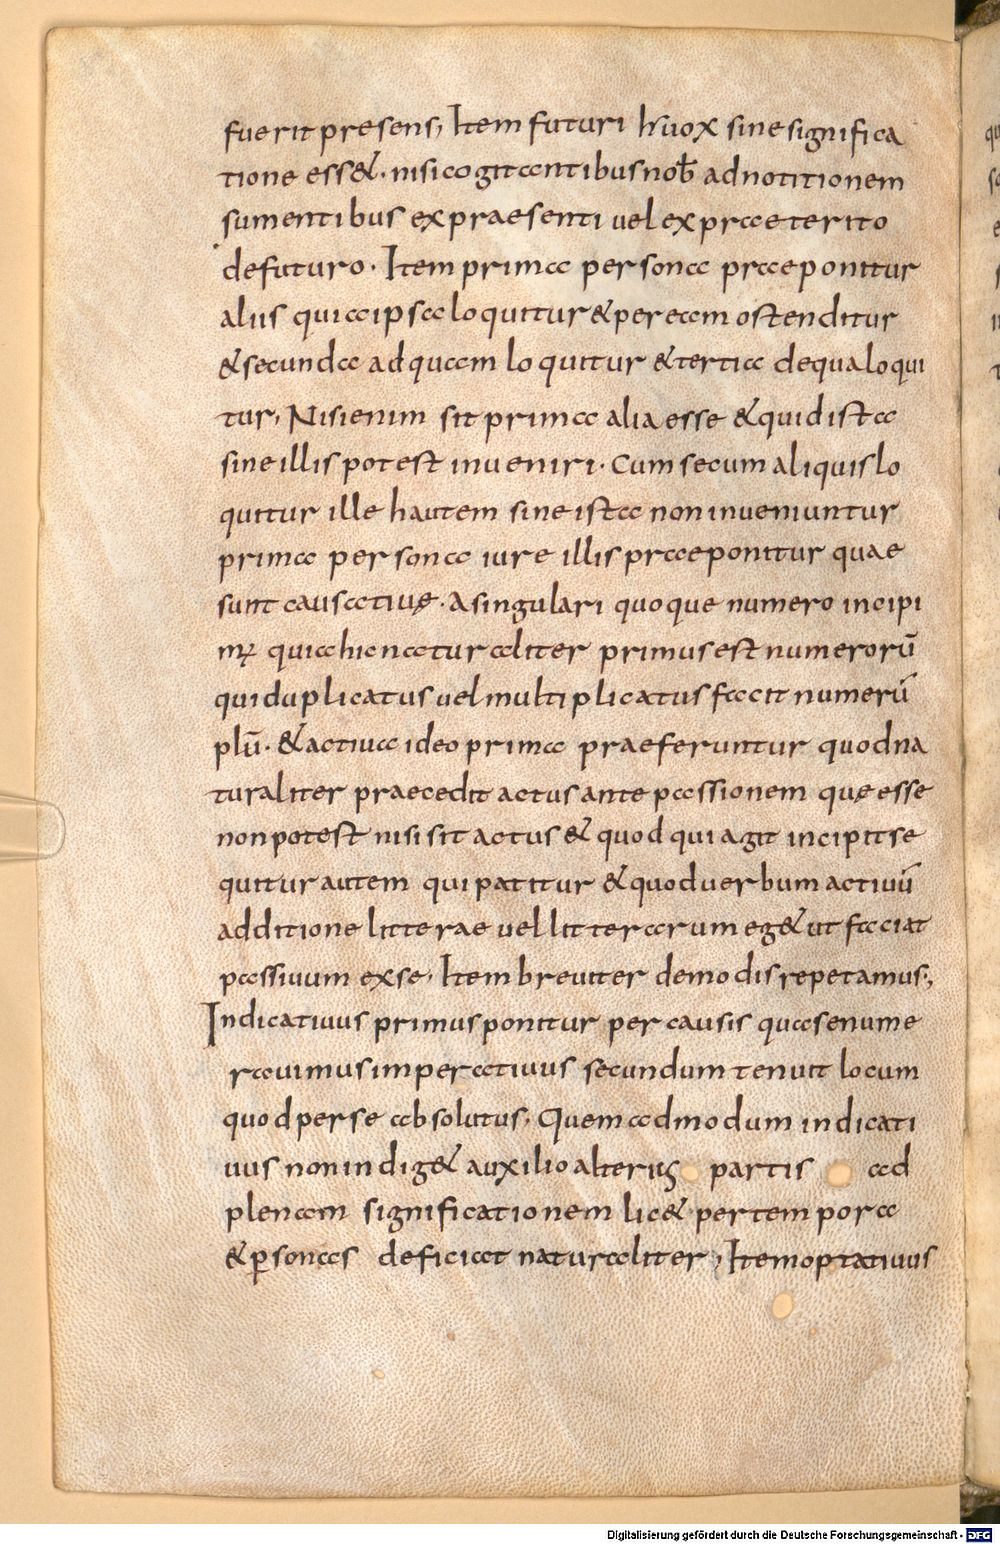 fuerit presens, Item futuri h&uox sine significa
tione ess&. nisi cogitantibus nob̄ ad notitionem
sumentibus ex praesenti uel ex praeterito
de futuro. Item prima persona praeponitur
aliis quia ipsa loquitur & per eam ostenditur
& secunda ad quam loquitur & tertia de qua loqui
tur, Nisi enim sit prima alia esse & quid ista
sine illis potest inueniri. Cum secum aliquis lo
quitur ille hautem sine ista non inueniuntur
prima persona iure illis praeponitur quae
sunt causatiuę. A singulari quoque numero incipi
mꝛ quia hic naturaliter primus est numerorū
qui duplicatus uel multiplicatus facit numerū
plū. & actiua ideo prima praeferuntur quod na
turaliter praecedit actus ante passionem quę esse
non potest nisi sit actus & quod qui agit incipit se
quitur autem qui patitur & quod uerbum actiuū
additione litterae uel litterarum eg& ut faciat
passiuum ex se, Item breuiter de modis repetamus.,
Indicatiuus primus ponitur per causis quas enume
rauimus imperatiuus secundum tenuit locum
quod per se absolutus, Quem ad modum indicati
uus non indig& auxilio alteriꝰ partis ad
plenam significationem lic& per tempora
& ꝑsonas deficiat naturaliter, Item optatiuus
Digitalisierung gefördert durch die Deutsche Forschungsgemeinschaft - DFG